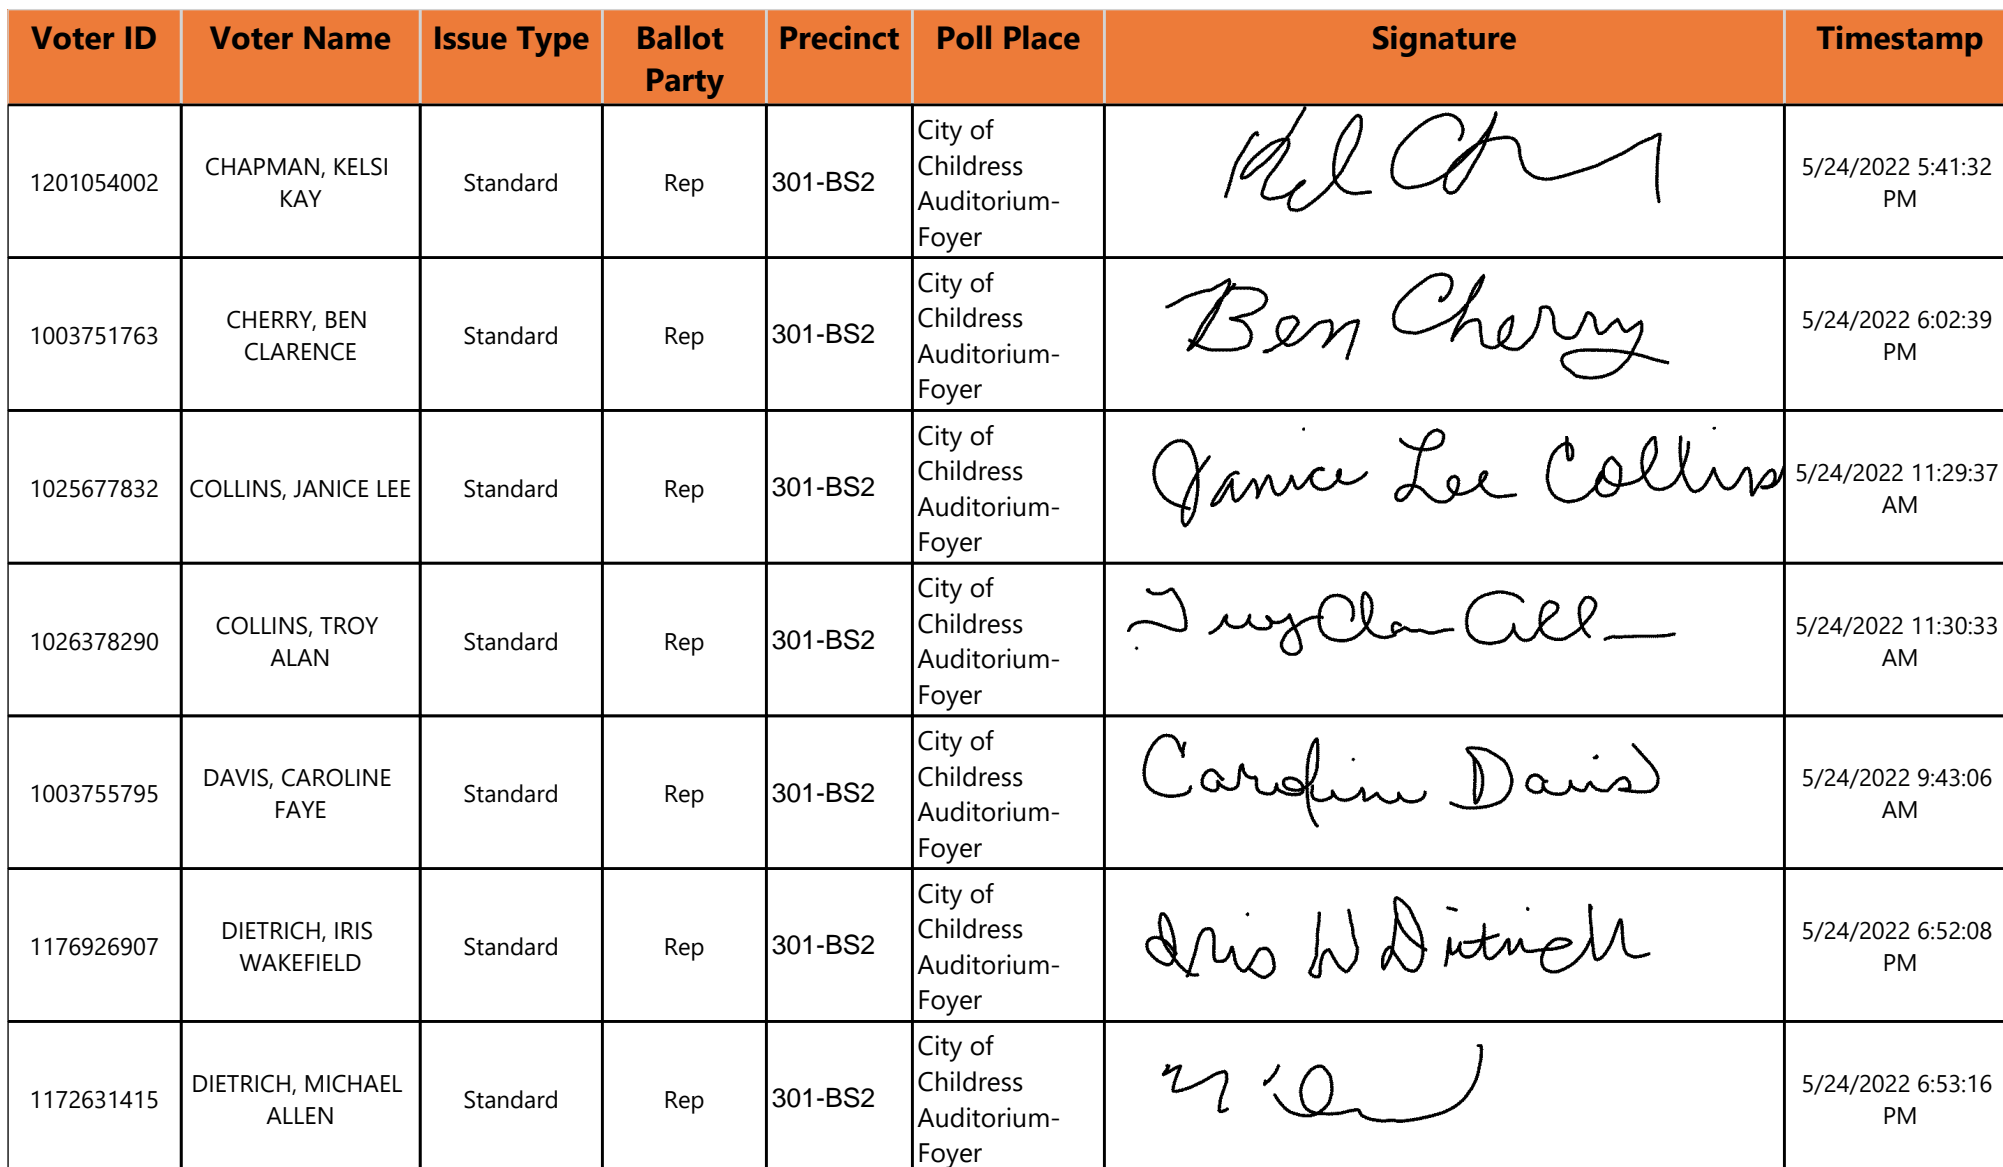 Voter ID Voter Name Issue Type Ballot Party Precinct Poll Place Signature Timestamp
1201054002 CHAPMAN, KELSI KAY Standard Rep 301-BS2 City of Childress Auditorium-Foyer 5/24/2022 5:41:32 PM
1003751763 CHERRY, BEN CLARENCE Standard Rep 301-BS2 City of Childress Auditorium-Foyer Ben Cherry 5/24/2022 6:02:39 PM
1025677832 COLLINS, JANICE LEE Standard Rep 301-BS2 City of Childress Auditorium-Foyer Janice Lee Collins 5/24/2022 11:29:37 AM
1026378290 COLLINS, TROY ALAN Standard Rep 301-BS2 City of Childress Auditorium-Foyer 5/24/2022 11:30:33 AM
1003755795 DAVIS, CAROLINE FAYE Standard Rep 301-BS2 City of Childress Auditorium-Foyer Caroline Davis 5/24/2022 9:43:06 AM
1176926907 DIETRICH, IRIS WAKEFIELD Standard Rep 301-BS2 City of Childress Auditorium-Foyer Iris W Dietrich 5/24/2022 6:52:08 PM
1172631415 DIETRICH, MICHAEL ALLEN Standard Rep 301-BS2 City of Childress Auditorium-Foyer 5/24/2022 6:53:16 PM